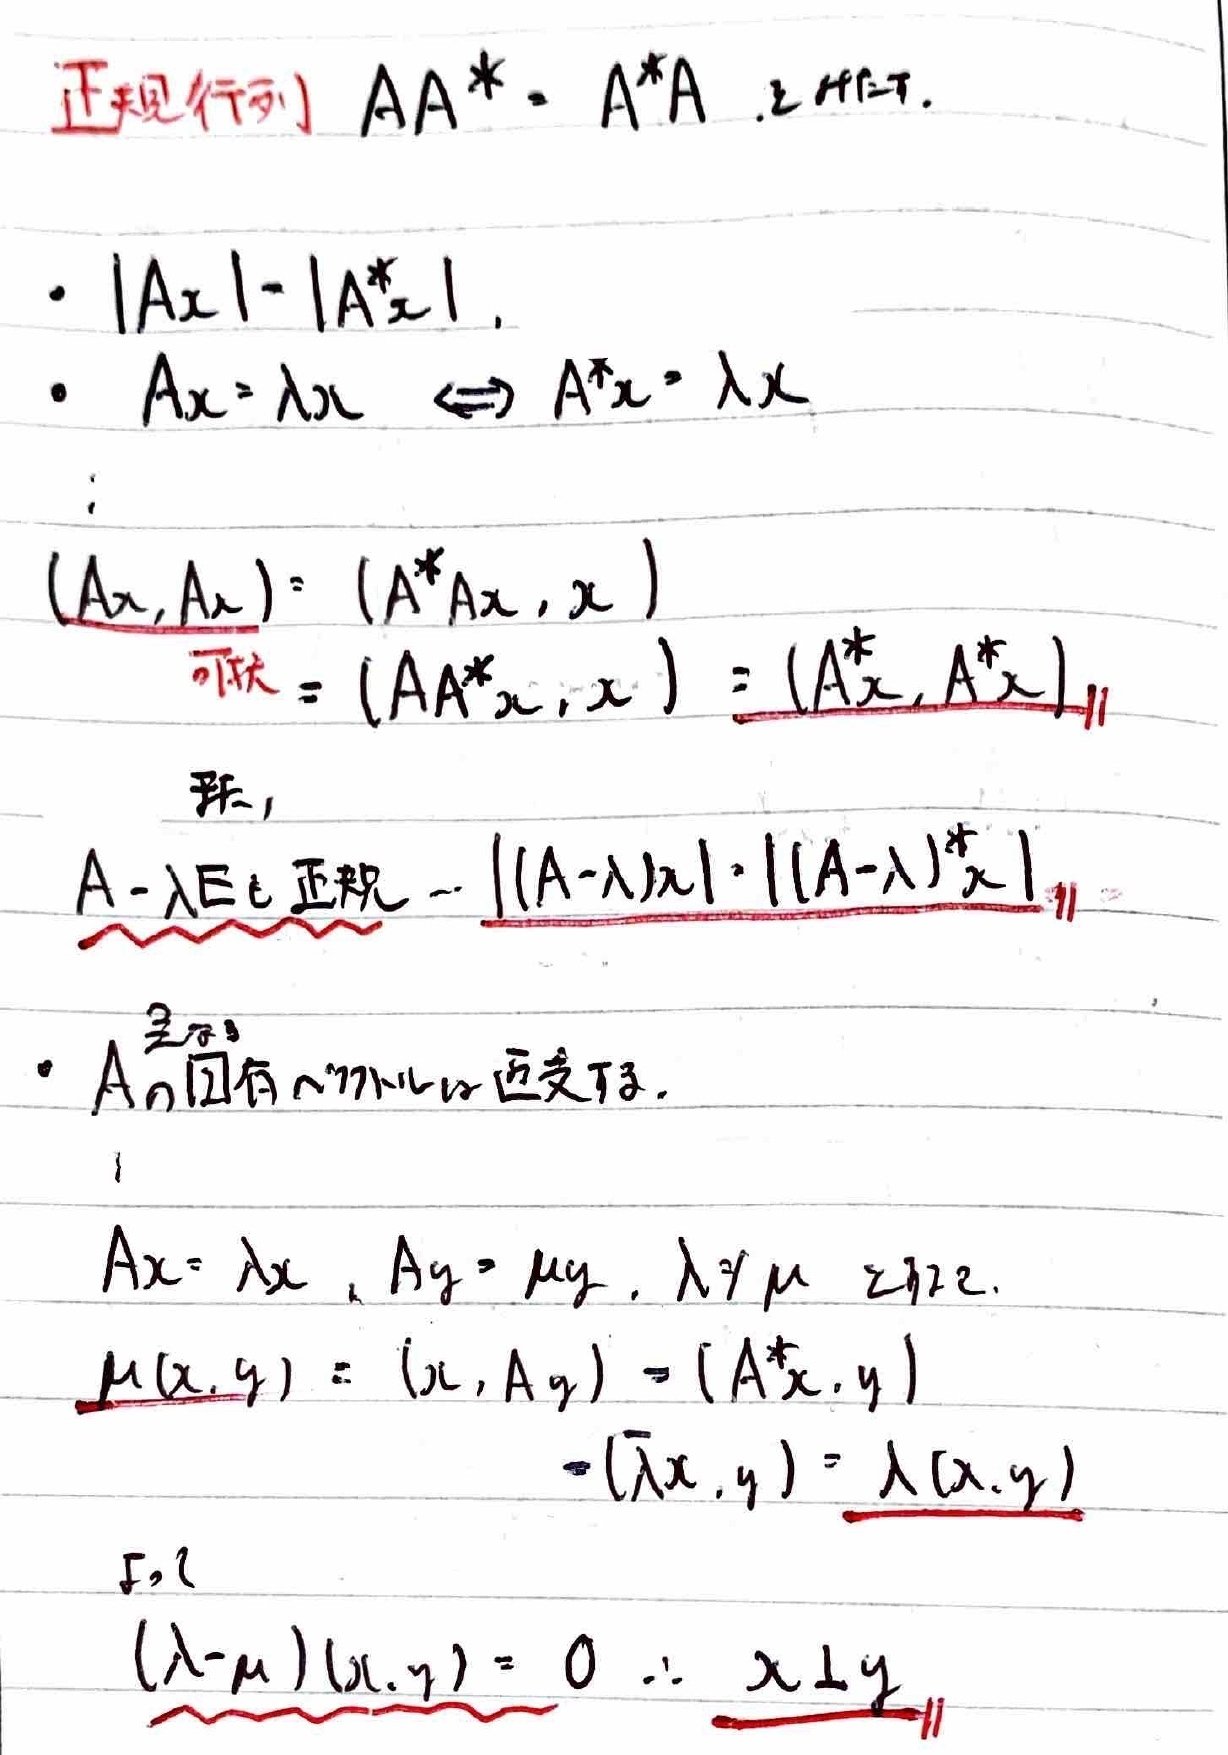 正規行列 AA* = A*A をみたす.
・ |Ax| = |A*x|,
・ Ax = λx ⇔ A*x = λx
∵
(Ax, Ax) = (A*Ax, x)
可換 = (AA*x, x) = (A*x, A*x)
また,
A-λEも正規 … |(A-λ)x| = |(A-λ)*x|
異なる
・ Aの固有ベクトルは直交する.
Ax = λx, Ay = μy, λ≠μ とする.
μ(x, y) = (x, Ay) = (A*x, y)
= (λ̄x, y) = λ(x, y)
よって
(λ-μ)(x, y) = 0 ∴ x⊥y